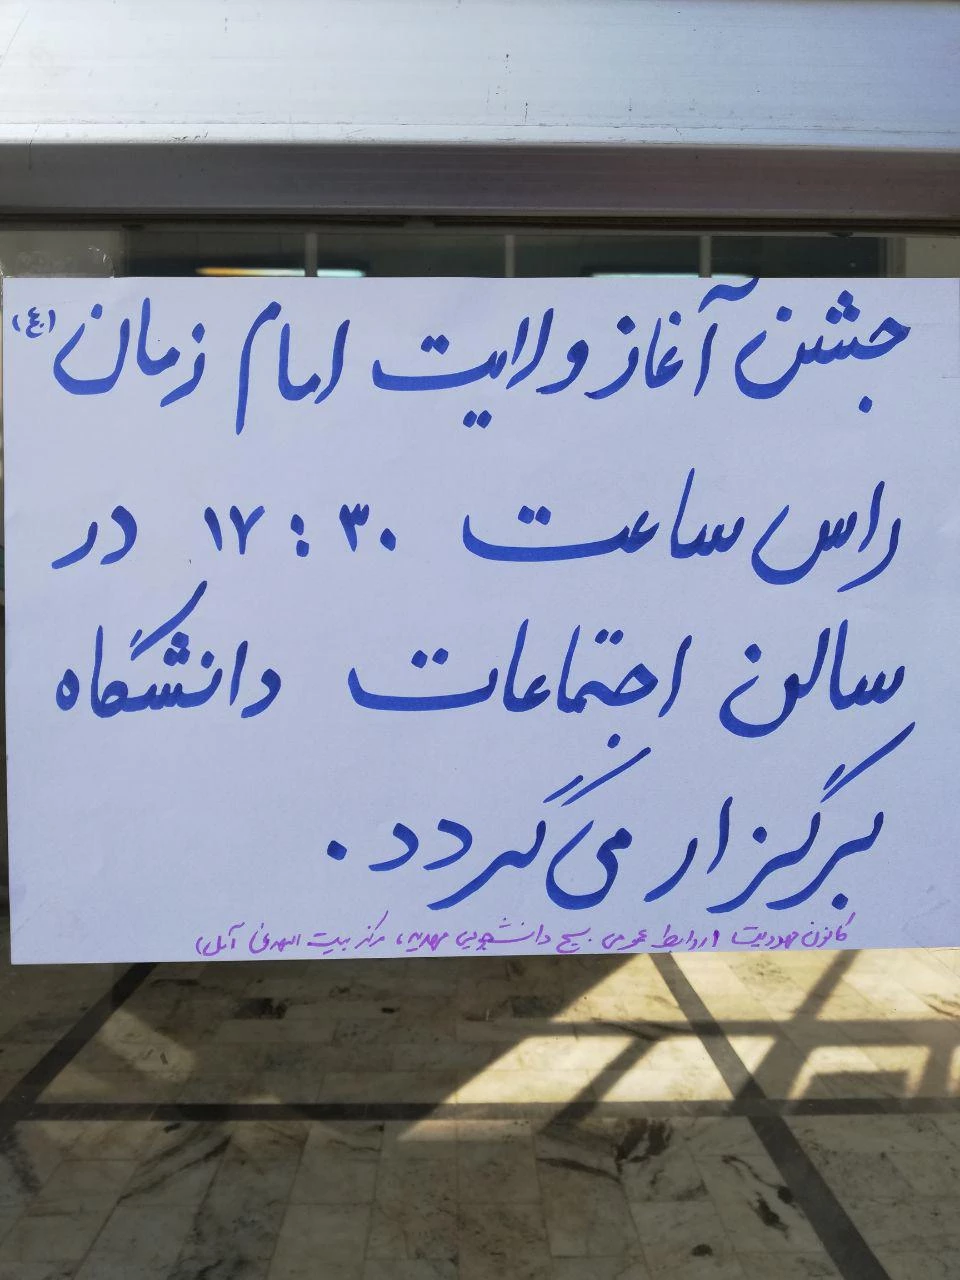 جشن آغاز ولایت امام زمان (عج)
راس ساعت ۱۷:۳۰ در
سالن اجتماعات دانشگاه
برگزار می گردد.
کانون مهدویت (روابط عمومی بسیج دانشجویی مهدیه، مرکز بیت المهدی آمل)